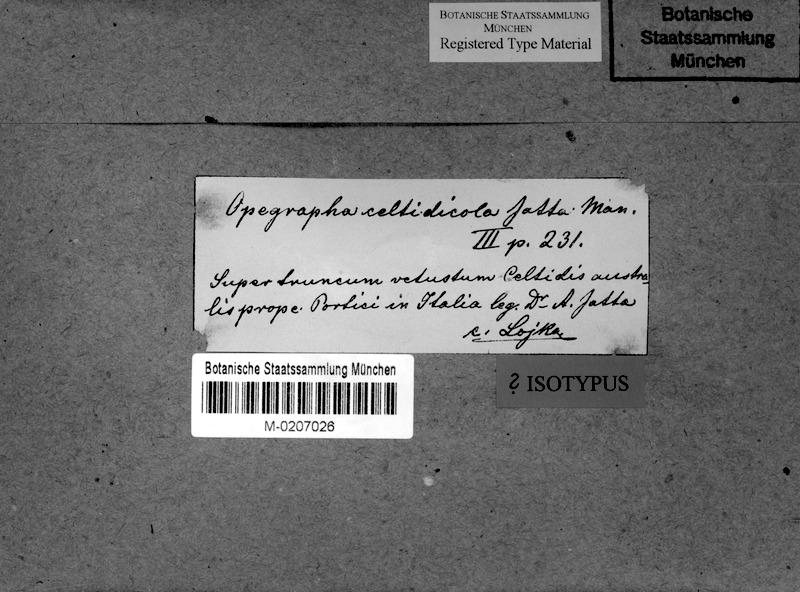 BOTANISCHE STAATSSAMMLUNG
MÜNCHEN
Registered Type Material
Botanische
Staatssammlung
München
Opegrapha celtidicola Jatta Man.
III p. 231.
Super truncum vetustum Celtidis austra-
lis prope Portici in Italia leg. Dr A. Jatta
c. Lojka
Botanische Staatssammlung München
M-0207026
? ISOTYPUS